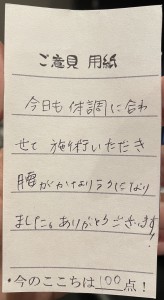 ご意見 用紙
今日も体調に合わ
せて 施術いただき
腰がかなりラクになり
ました。ありがとうございます!
・今のここちは100点!